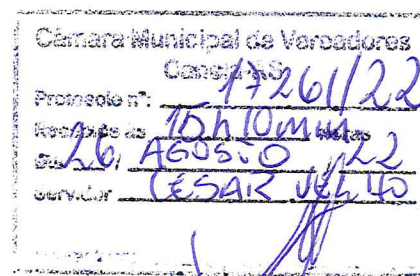 Câmara Municipal de Vereadores
Canela-RS
Protocolo nº: 17261/22
Recebido às 15h10min Horas
Dia 26 / AGOSTO / 22
Servidor CÉSAR VELHO